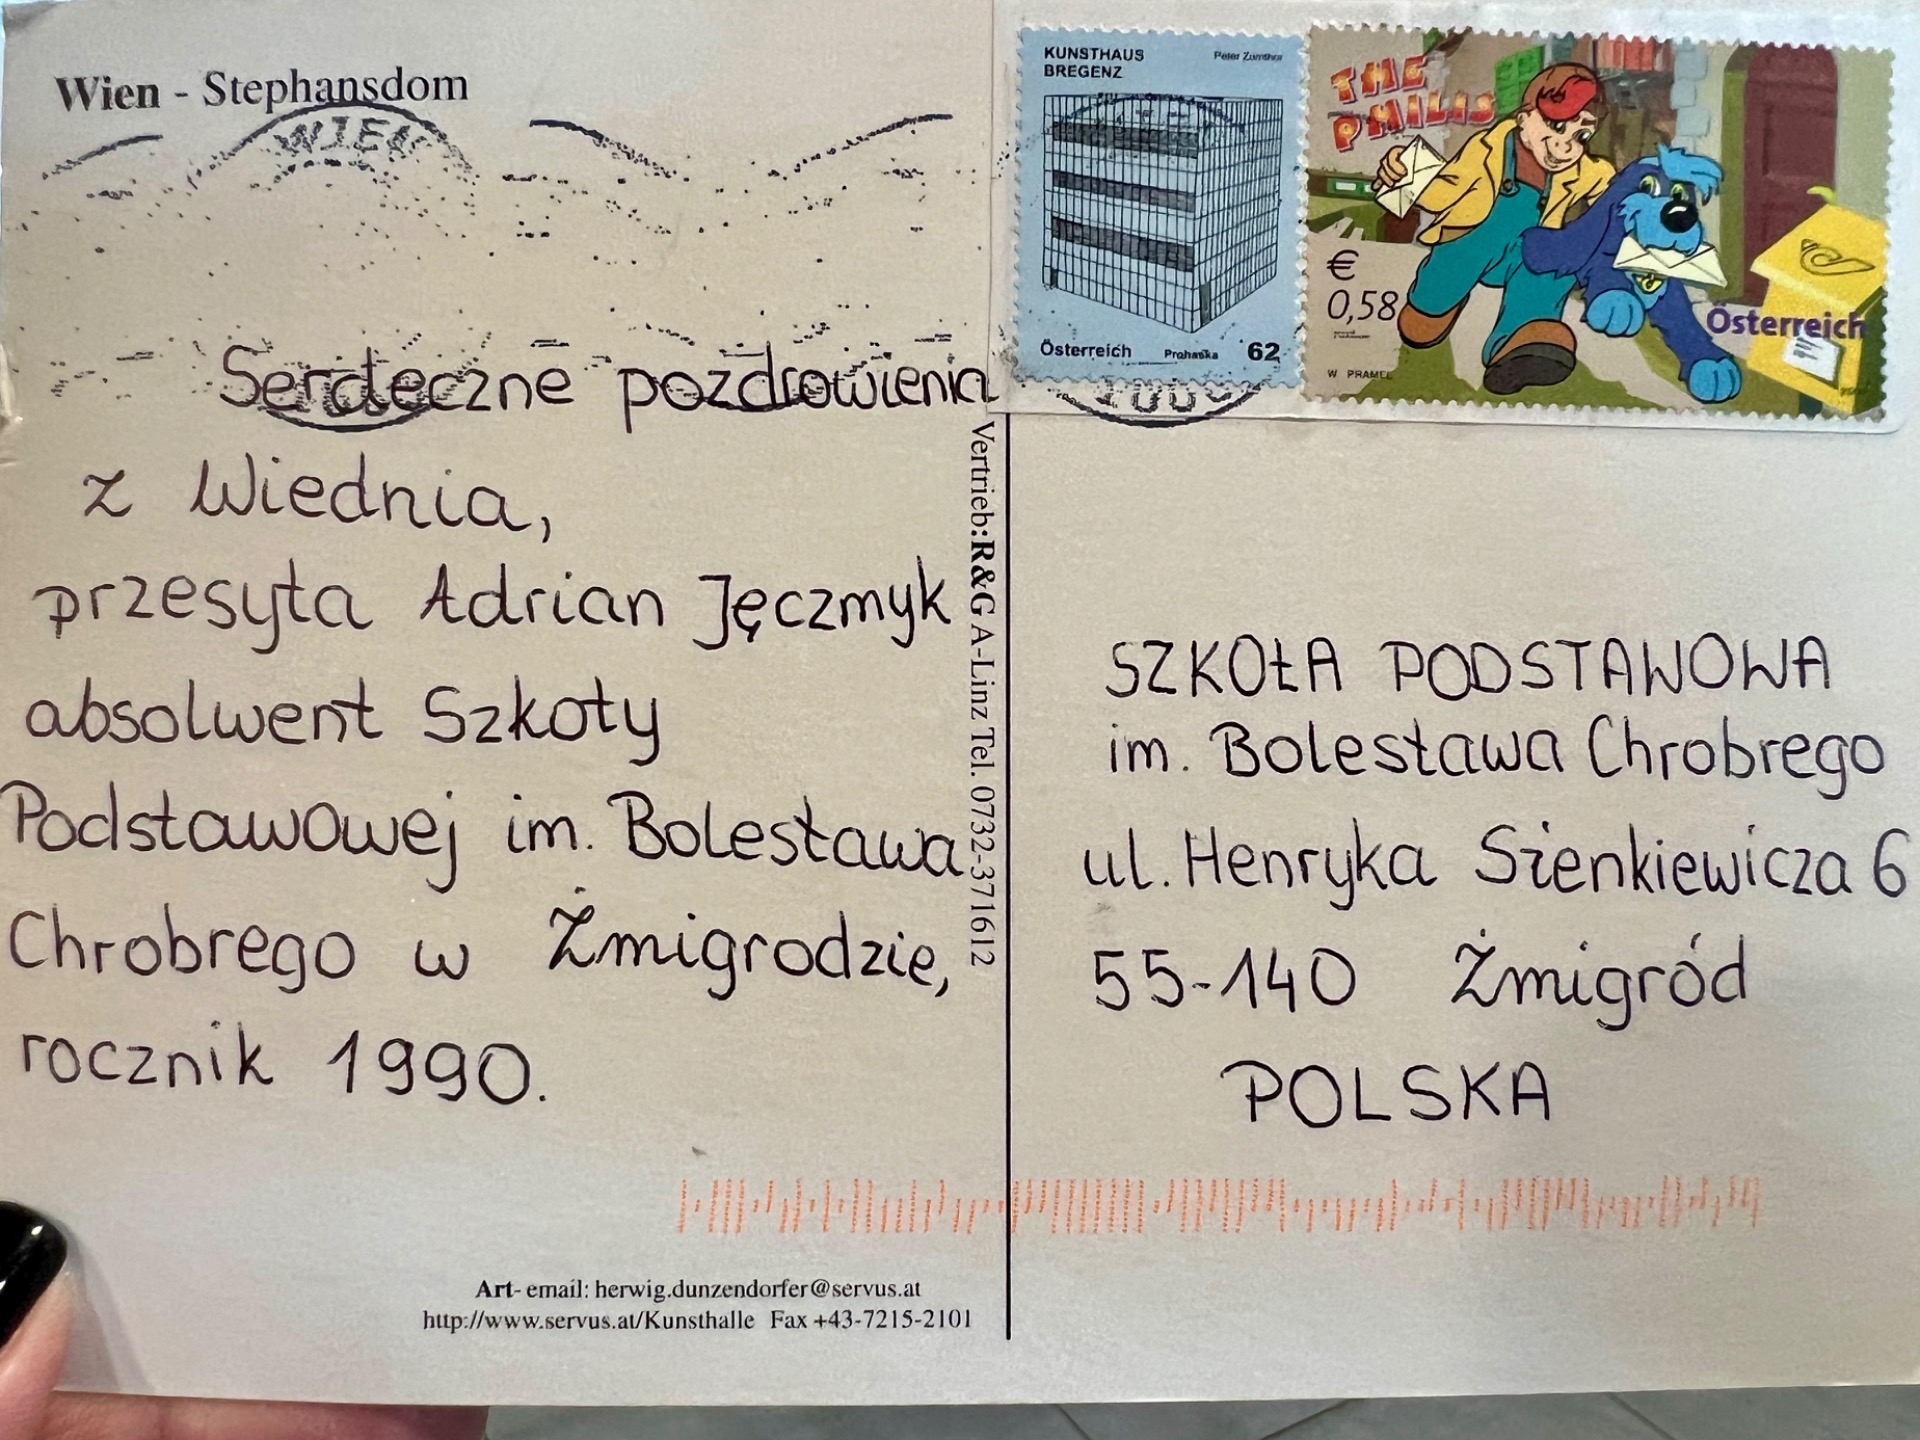 Wien - Stephansdom
WIEN
Serdeczne pozdrowienia
z Wiednia,
przesyła Adrian Jęczmyk
absolwent Szkoły
Podstawowej im. Bolesława
Chrobrego w Żmigrodzie,
rocznik 1990.
Art- email: herwig.dunzendorfer@servus.at
http://www.servus.at/Kunsthalle Fax +43-7215-2101
Vertrieb:R&G A-Linz Tel. 0732-371612
KUNSTHAUS
BREGENZ
Peter Zumthor
Österreich Prohaska 62
THE
PHILIS
€
0,58
Österreich
W PRAMEL
SZKOŁA PODSTAWOWA
im. Bolesława Chrobrego
ul. Henryka Sienkiewicza 6
55-140 Żmigród
POLSKA